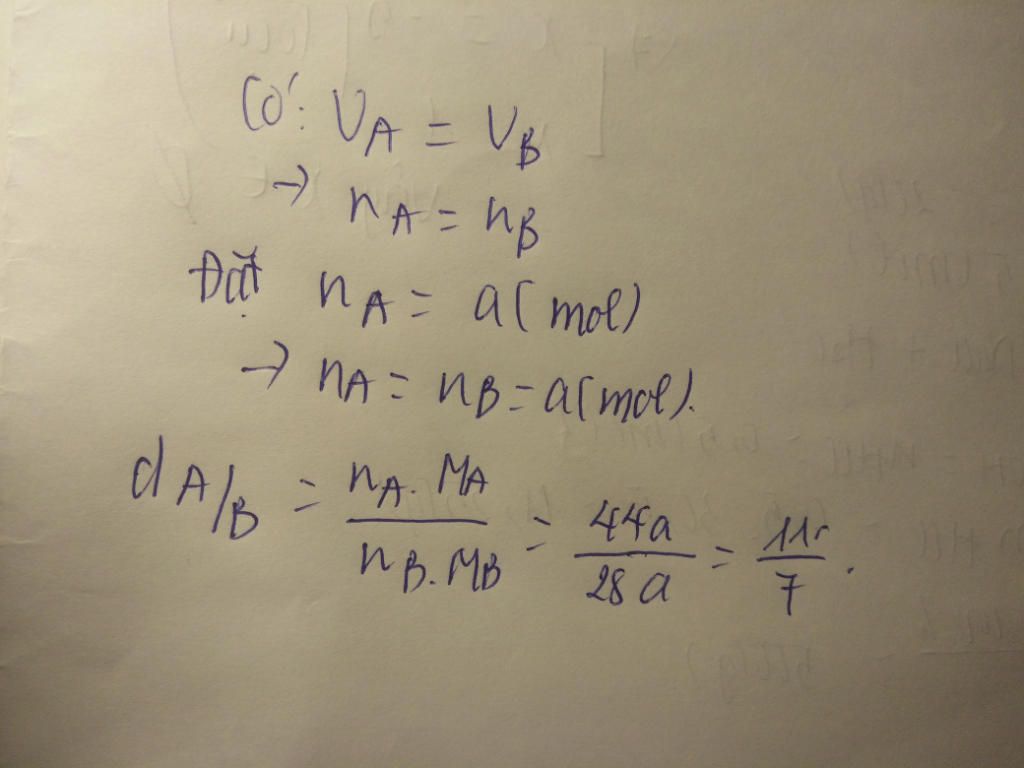 Có: VA = VB
→ nA = nB
Đặt nA = a(mol)
→ nA = nB = a(mol).
dA/B = nA.MA / nB.MB = 44a / 28a = 11 / 7.